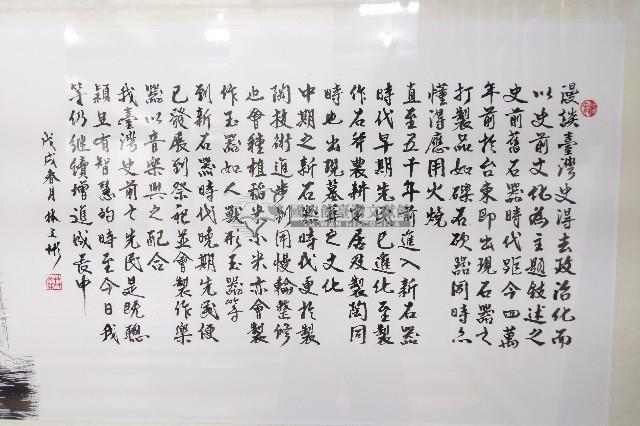 漫談臺灣史得去政治化而
以史前文化為主題敍述之
史前舊石器時代距今四萬
年前於台東即出現石器之
打製品如礫石砍器同時亦
懂得應用火燒
直至五千年前進入新石器
時代早期先民已進化至製
作石斧農耕定居及製陶同
時也出現墓葬之文化
中期之新石器時代更於製
陶技術進步利用慢輪整修
也會種植稻米小米亦會製
作玉器如人獸形玉器等
到新石器時代晚期先民便
已發展到祭祀並會製作樂
器以音樂與之配合
我臺灣史前之先民是既聰
穎且有智慧的時至今日我
等仍繼續增進成長中
戊戌春月林文彬